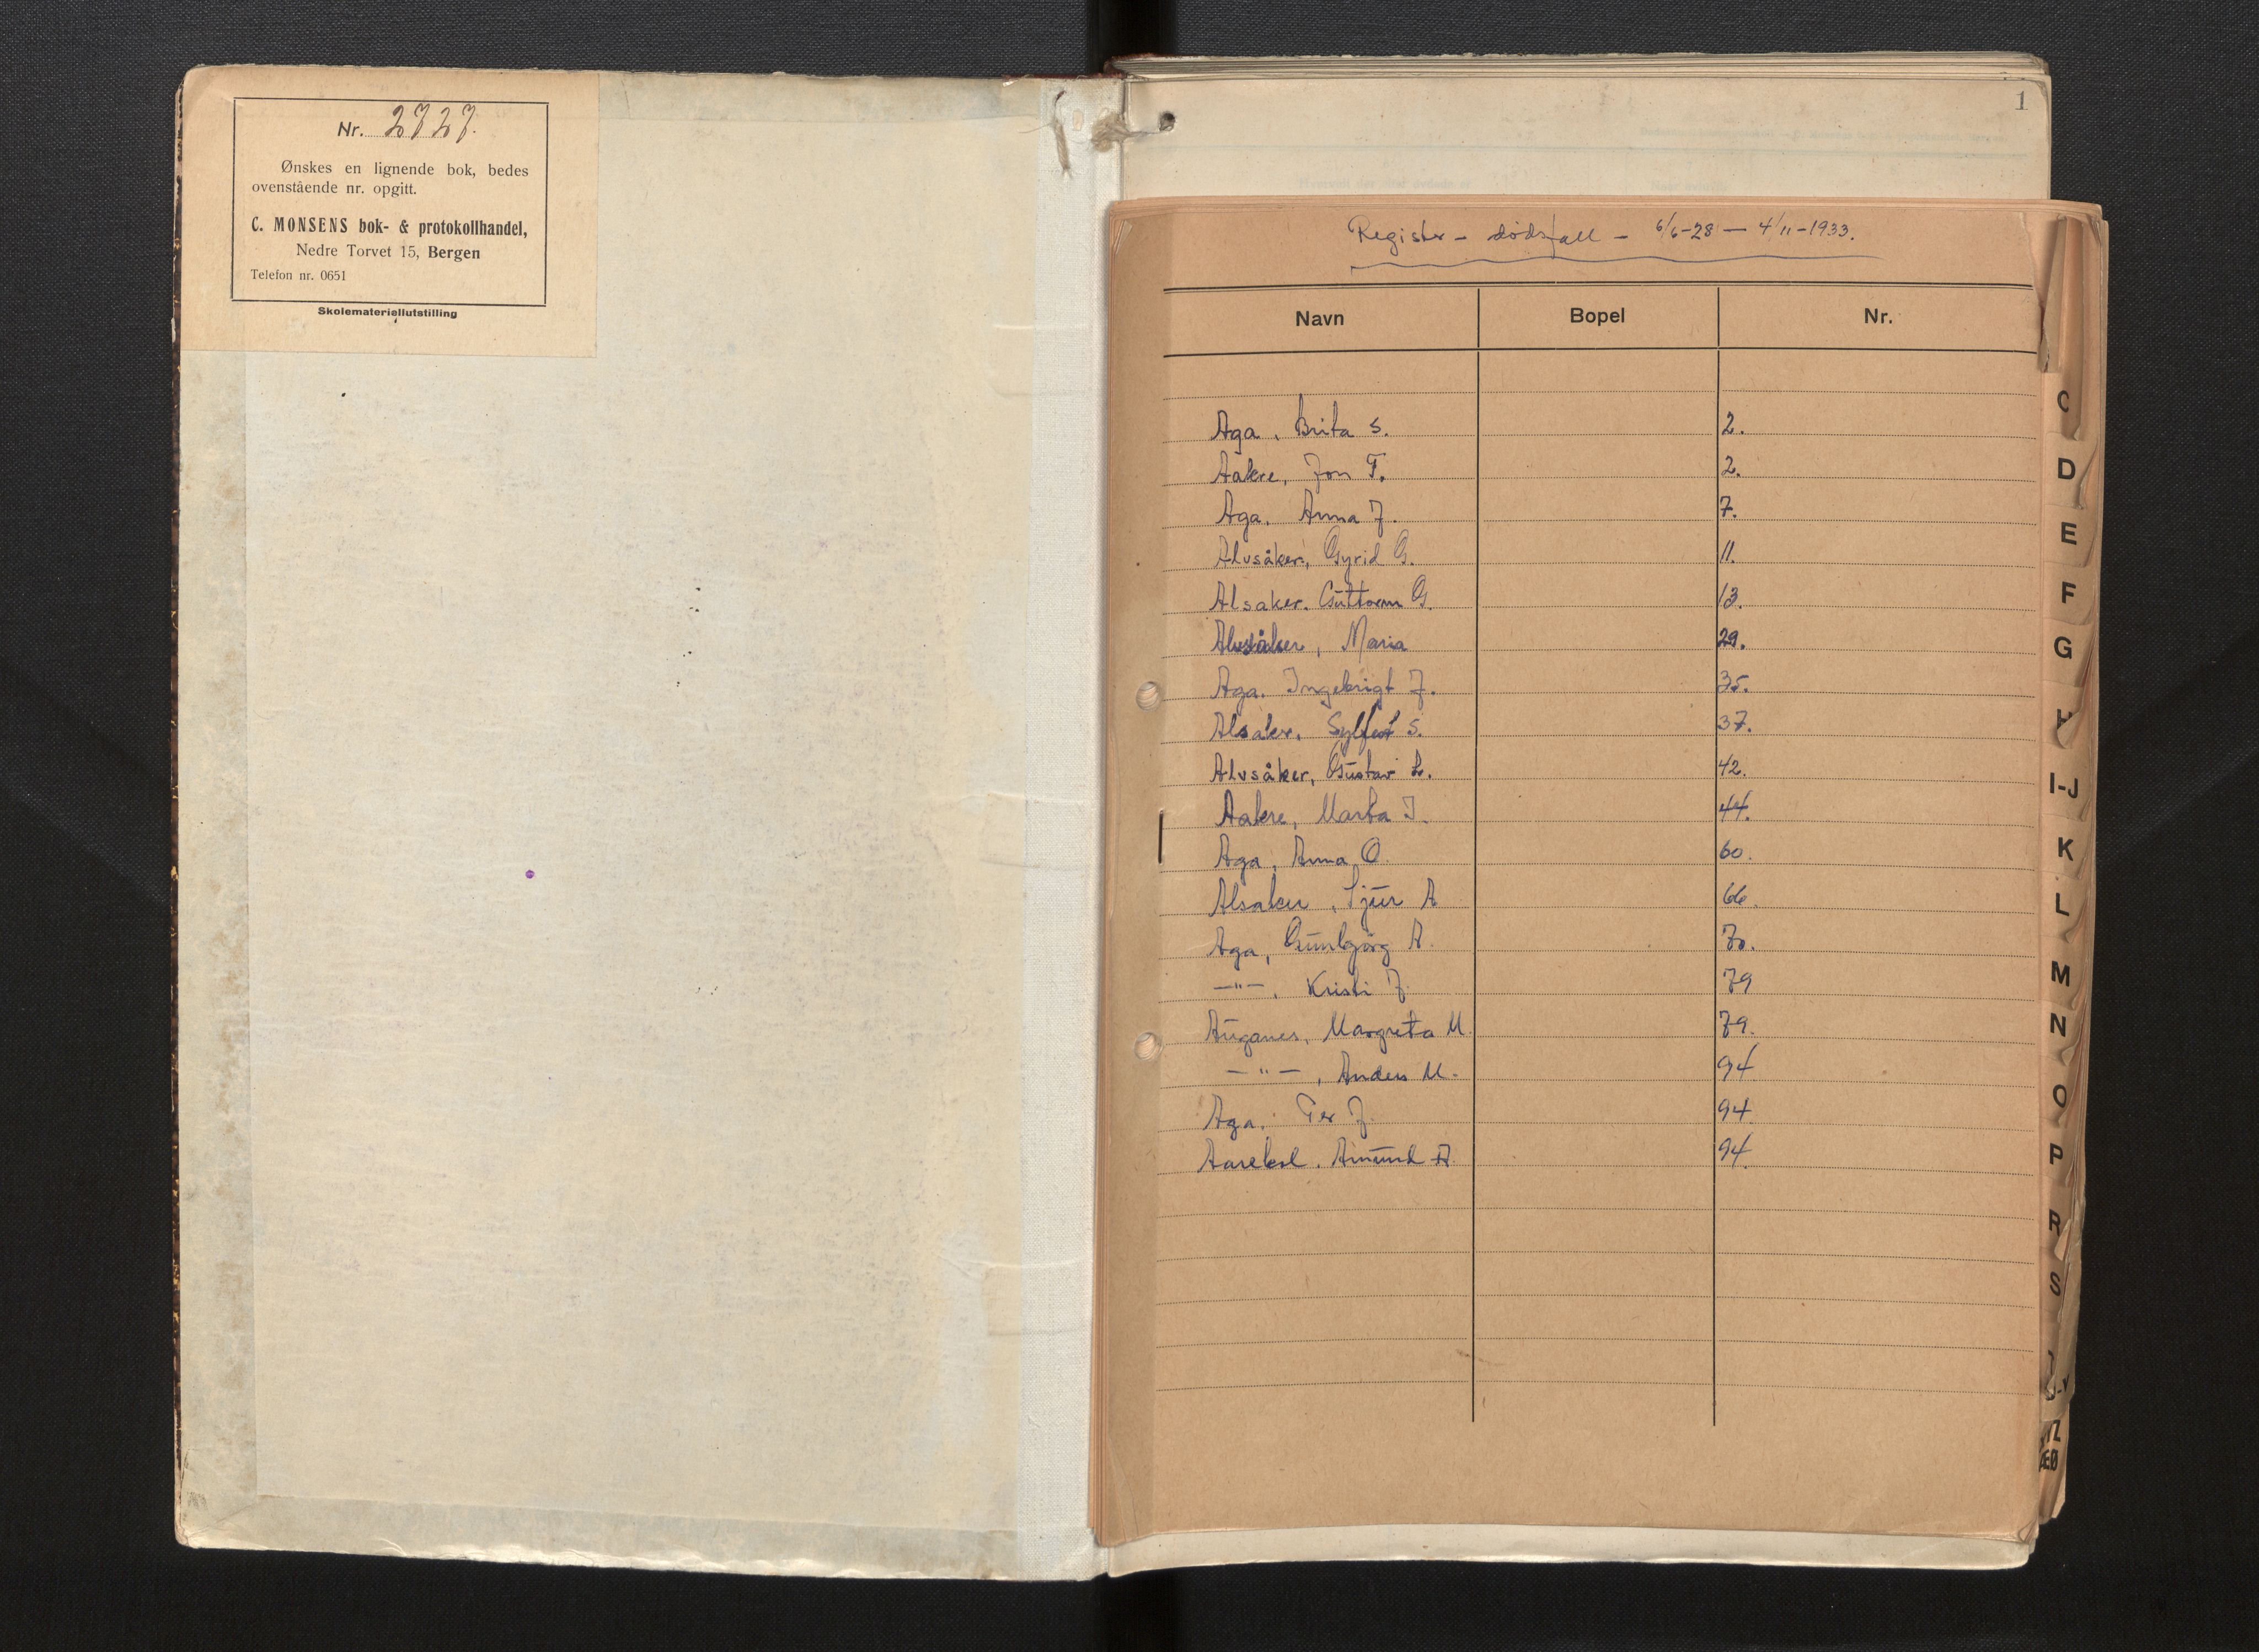 Nr. 2727.
Ønskes en lignende bok, bedes
ovenstående nr. opgitt.
C. MONSENS bok- & protokollhandel,
Nedre Torvet 15, Bergen
Telefon nr. 0651
Skolemateriellutstilling
1
Register - dødsfall - 6/6-28 - 4/11-1933.
Navn Bopel Nr.
Aga, Brita S. 2.
Aakre, Jon T. 2.
Aga. Anna J. 7.
Alvsåker, Gyrid G. 11.
Alsaker. Guttorm G. 13.
Alvsåker, Maria 29.
Aga. Ingebrigt J. 35.
Alsaker. Sylfest S. 37.
Alvsåker, Gustav L. 42.
Aakre, Marta I. 44.
Aga, Anna O. 60.
Alsaker, Sjur A 66.
Aga, Gunbjörg A. 70.
—"—, Kristi J. 79
Auganes, Margreta M. 79.
—"—, Anders M. 94
Aga. Per J. 94.
Amund A. 94.
C
D
E
F
G
H
I-J
K
L
M
N
O
P
R
S